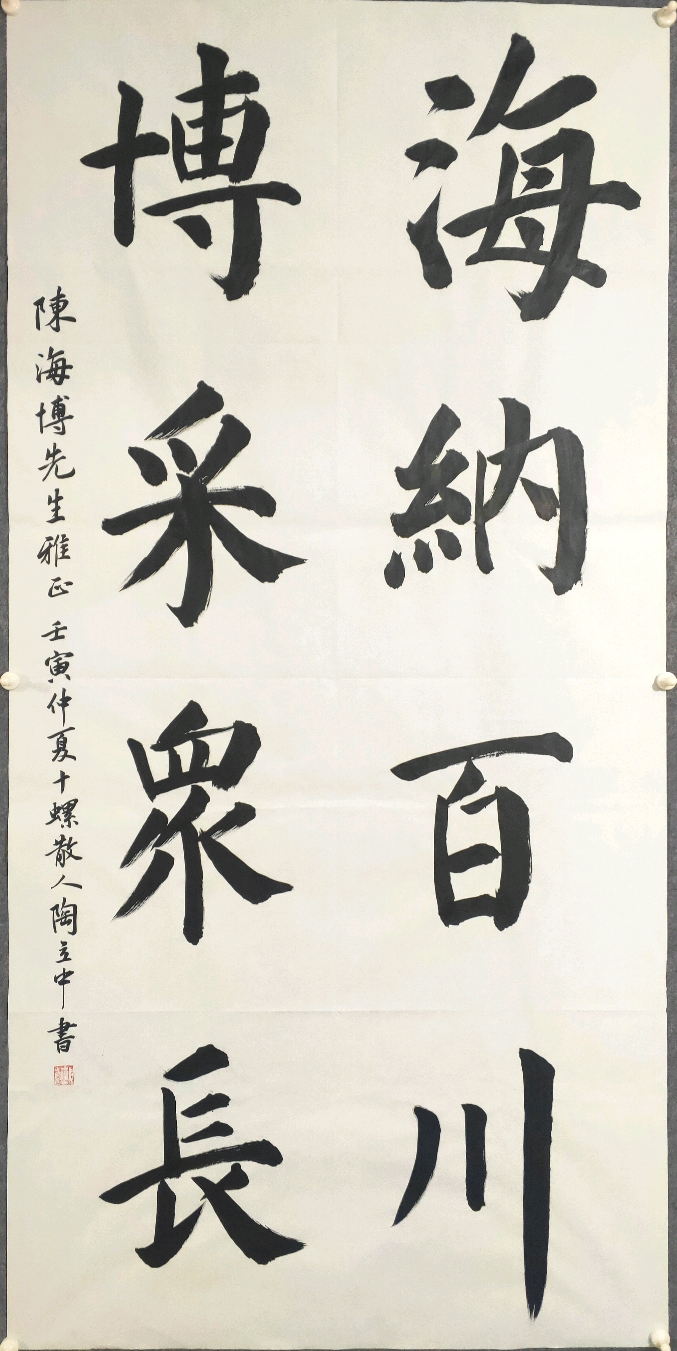 海納百川
博采眾長
陳海博先生雅正 壬寅仲夏十螺散人陶立中書